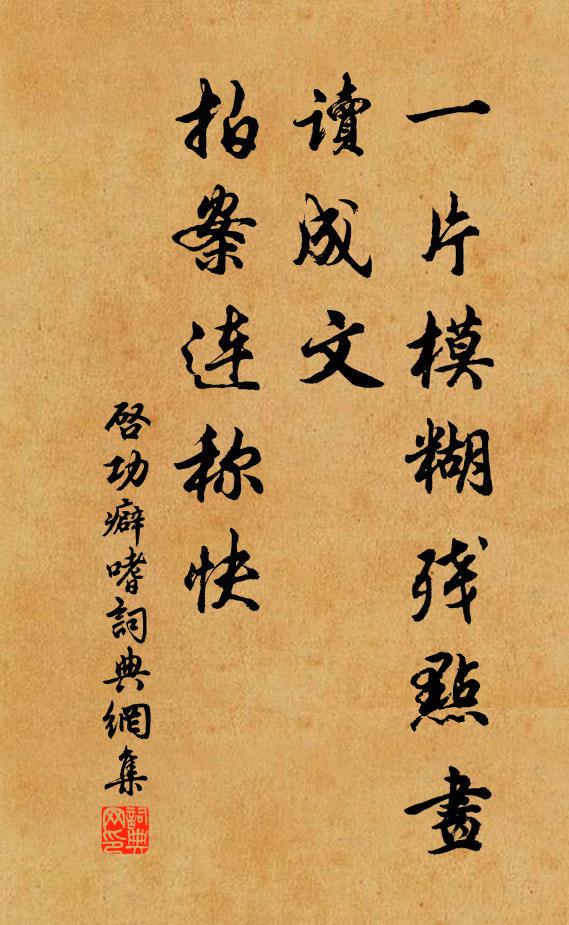 一片模糊残點畫
讀成文
拍案连称快
啓功癖嗜詞典網集
詞典网印